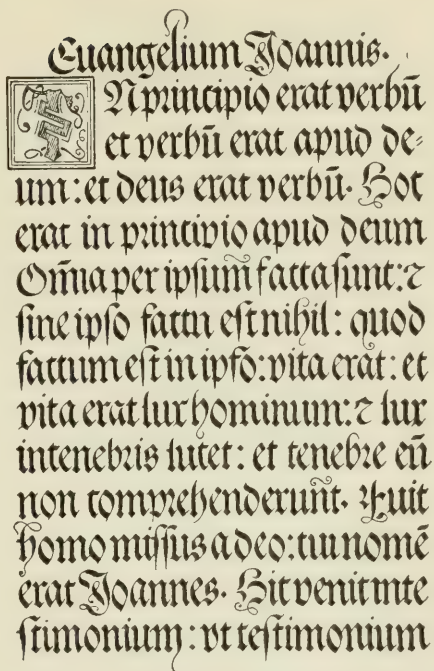 Euangelium Joannis.
IN principio erat verbū
et verbū erat apud de=
um: et deus erat verbū. Hoc
erat in principio apud deum
Om̄ia per ipſum facta ſunt: ⁊
ſine ipſo factū eſt nihil: quod
factum eſt in ipſo: vita erat: et
vita erat lux hominum: ⁊ lux
in tenebris lucet: et tenebre eū
non comprehenderunt. Fuit
homo miſſus a deo: cui nomē
erat Joannes. Hic venit in te
ſtimonium: vt teſtimonium